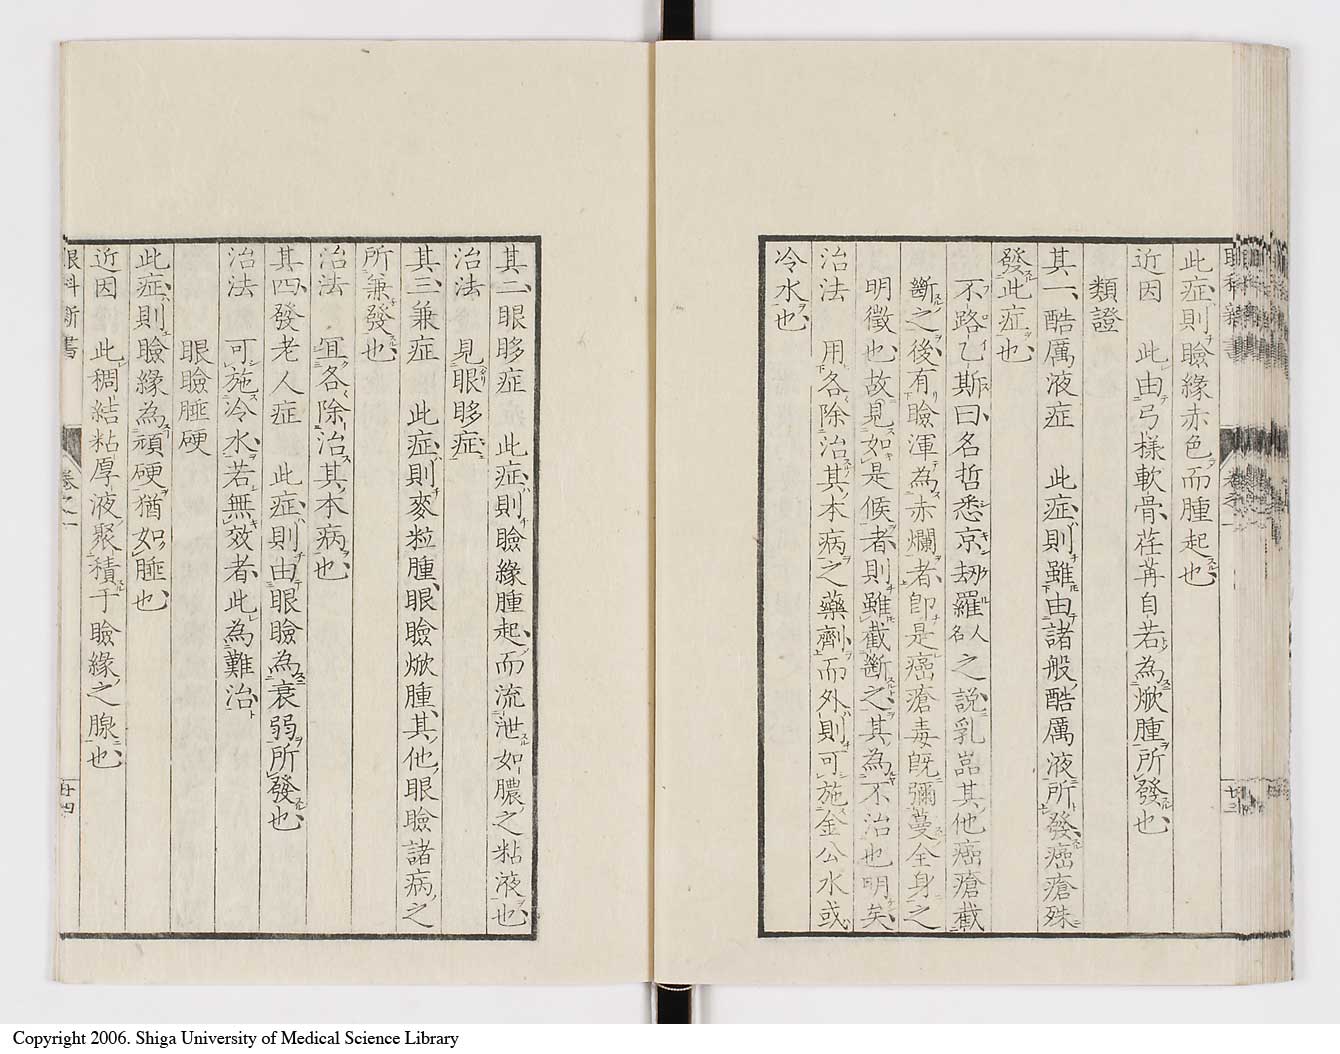 此症則瞼緣赤色而腫起也
近因　此由弓樣軟骨荏苒自若為焮腫所發也
類證
其一酷厲液症　此症則雖由諸般酷厲液所發癌瘡殊
發此症也
不路乙斯曰名哲悉京刼羅人名之說乳嵓其他癌瘡截
斷之後有瞼渾為赤爛者卽是癌瘡毒旣彌蔓全身之
明徵也故見如是候者則雖截斷之其為不治也明矣
治法　用各除治其本病之藥劑而外則可施金公水或
冷水也
其二眼眵症　此症則瞼緣腫起而流泄如膿之粘液也
治法　見眼眵症
其三兼症　此症則麥粒腫眼瞼焮腫其他眼瞼諸病之
所兼發也
治法　宜各除治其本病也
其四發老人症　此症則由眼瞼為衰弱所發也
治法　可施冷水若無效者此為難治
眼瞼腄硬
此症則瞼緣為頑硬猶如腄也
近因　此稠結粘厚液聚積于瞼緣之腺也
眼科新書　卷之一　廿四
Copyright 2006. Shiga University of Medical Science Library